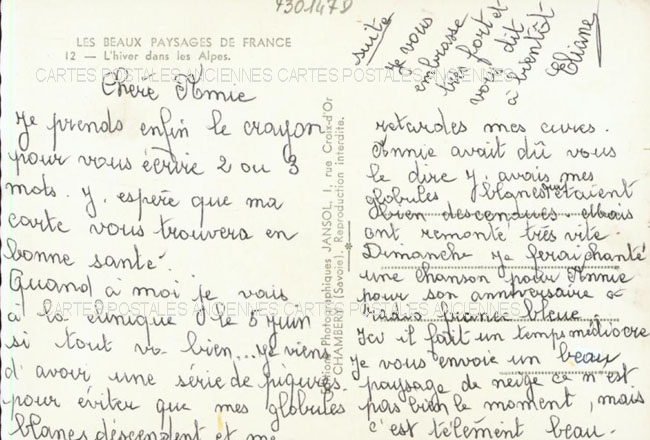 930147D
LES BEAUX PAYSAGES DE FRANCE
12 — L'hiver dans les Alpes.
CARTES POSTALES ANCIENNES CARTES POSTALES ANCIENNES CARTES POSTALES
Chère Annie
Je prends enfin le crayon
pour vous écrire 2 ou 3
mots. J. espère que ma
carte vous trouvera en
bonne santé.
Quand à moi je vais
à la clinique le 5 juin
si tout va bien... je viens
d'avoir une série de piqures.
pour éviter que mes globules
blancs descendent et me
Editions Photographiques JANSOL, 1, rue Croix-d'Or
CHAMBERY (Savoie). Reproduction interdite.
retardes mes cures.
Annie avait dû vous
le dire J. avais mes
globules blancs qui étaient
bien descendues. Mais
ont remonté très vite.
Dimanche je ferai chanté
une chanson pour Annie
pour son anniversaire à
radio france bleue.
Ici il fait un temps médiocre
Je vous envoie un beau
paysage de neige ce n'est
pas bien le moment, mais
c'est tèlement beau.
suite
Je vous
embrasse
bien fort et
vous dit
à bientôt
Eliane
CARTES POSTALES ANCIENNES CARTES POSTALES ANCIENNES CARTES POSTALES